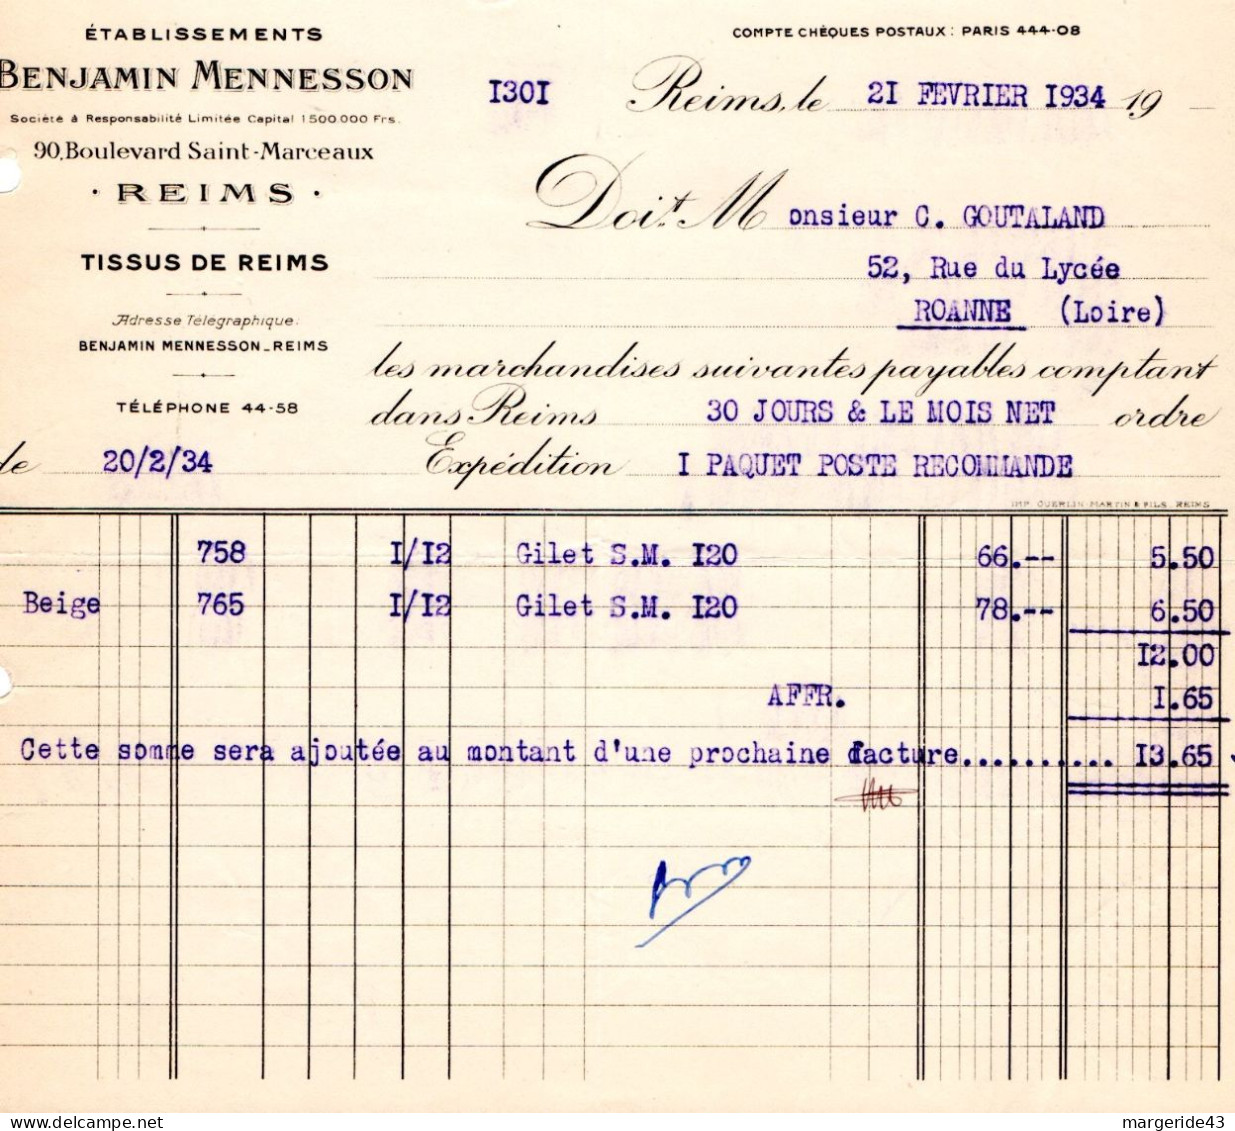 ÉTABLISSEMENTS
BENJAMIN MENNESSON
Société à Responsabilité Limitée Capital 1500.000 Frs.
90, Boulevard Saint-Marceaux
· REIMS ·
TISSUS DE REIMS
Adresse Télégraphique:
BENJAMIN MENNESSON_REIMS
TÉLÉPHONE 44-58
COMPTE CHÈQUES POSTAUX: PARIS 444-08
I30I Reims, le 2I FEVRIER I934 19
Doit M onsieur C. GOUTALAND
52, Rue du Lycée
ROANNE (Loire)
les marchandises suivantes payables comptant
dans Reims 30 JOURS & LE MOIS NET ordre
de 20/2/34 Expédition I PAQUET POSTE RECOMMANDE
IMP. GUERLIN-MARTIN & FILS. REIMS
758 I/I2 Gilet S.M. I20 66.-- 5.50
Beige 765 I/I2 Gilet S.M. I20 78.-- 6.50
I2.00
AFFR. I.65
Cette somme sera ajoutée au montant d'une prochaine facture.......... I3.65
margeride43